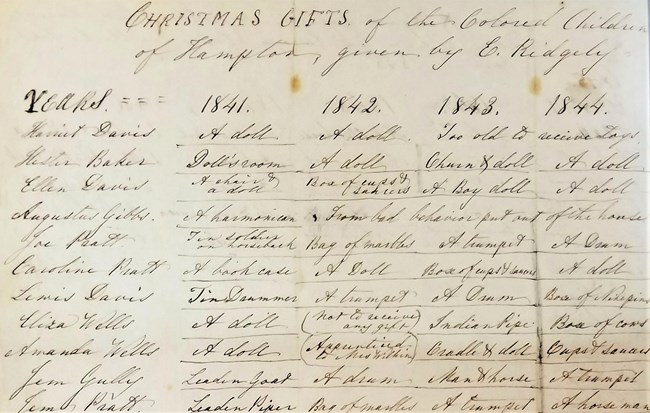 CHRISTMAS GIFTS of the Colored Children
of Hampton, given by E. Ridgely
YEARS. 1841. 1842. 1843. 1844.
Harriet Davis A doll A doll. Too old to receive Toys.
Hester Baker Doll's room A doll Churn & doll A doll
Ellen Davis A chair & a doll Box of cups & saucers A Boy doll A doll
Augustus Gibbs. A harmonican From bad behavior put out of the house
Joe Pratt Tin soldier on horseback Bag of marbles A trumpet A Drum
Caroline Pratt A book case A Doll Box of cups & saucers A doll
Lewis Davis Tin Drummer A trumpet A Drum Box of
Eliza Wells A doll (Not to receive any gift) Indian Pipe Box of cows
Amanda Wells A doll (Apprenticed to Mrs Wilkin) Cradle & doll Cups & saucers
Jem Gully Leaden Goat A drum Man & horse A trumpet
Jem Pratt Leaden Piper Bag of marbles A trumpet A horse man